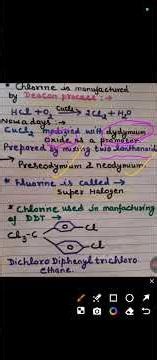 * Chlorine is manufactured
by Deacon process:→
HCl + O₂ CuCl₂ → 2Cl₂ + H₂O
Now a days:→
CuCl₂ modified with dydymium
oxide is a promoter.
Prepared by mixing two lanthanoid
→ Preseodymium & neodymium.
* Fluorine is called →
Super Halogen
* Chlorine used in manfacturing
of DDT →
Cl
Cl₃-C
Cl
Dichloro Diphenyl trichloro
ethane.